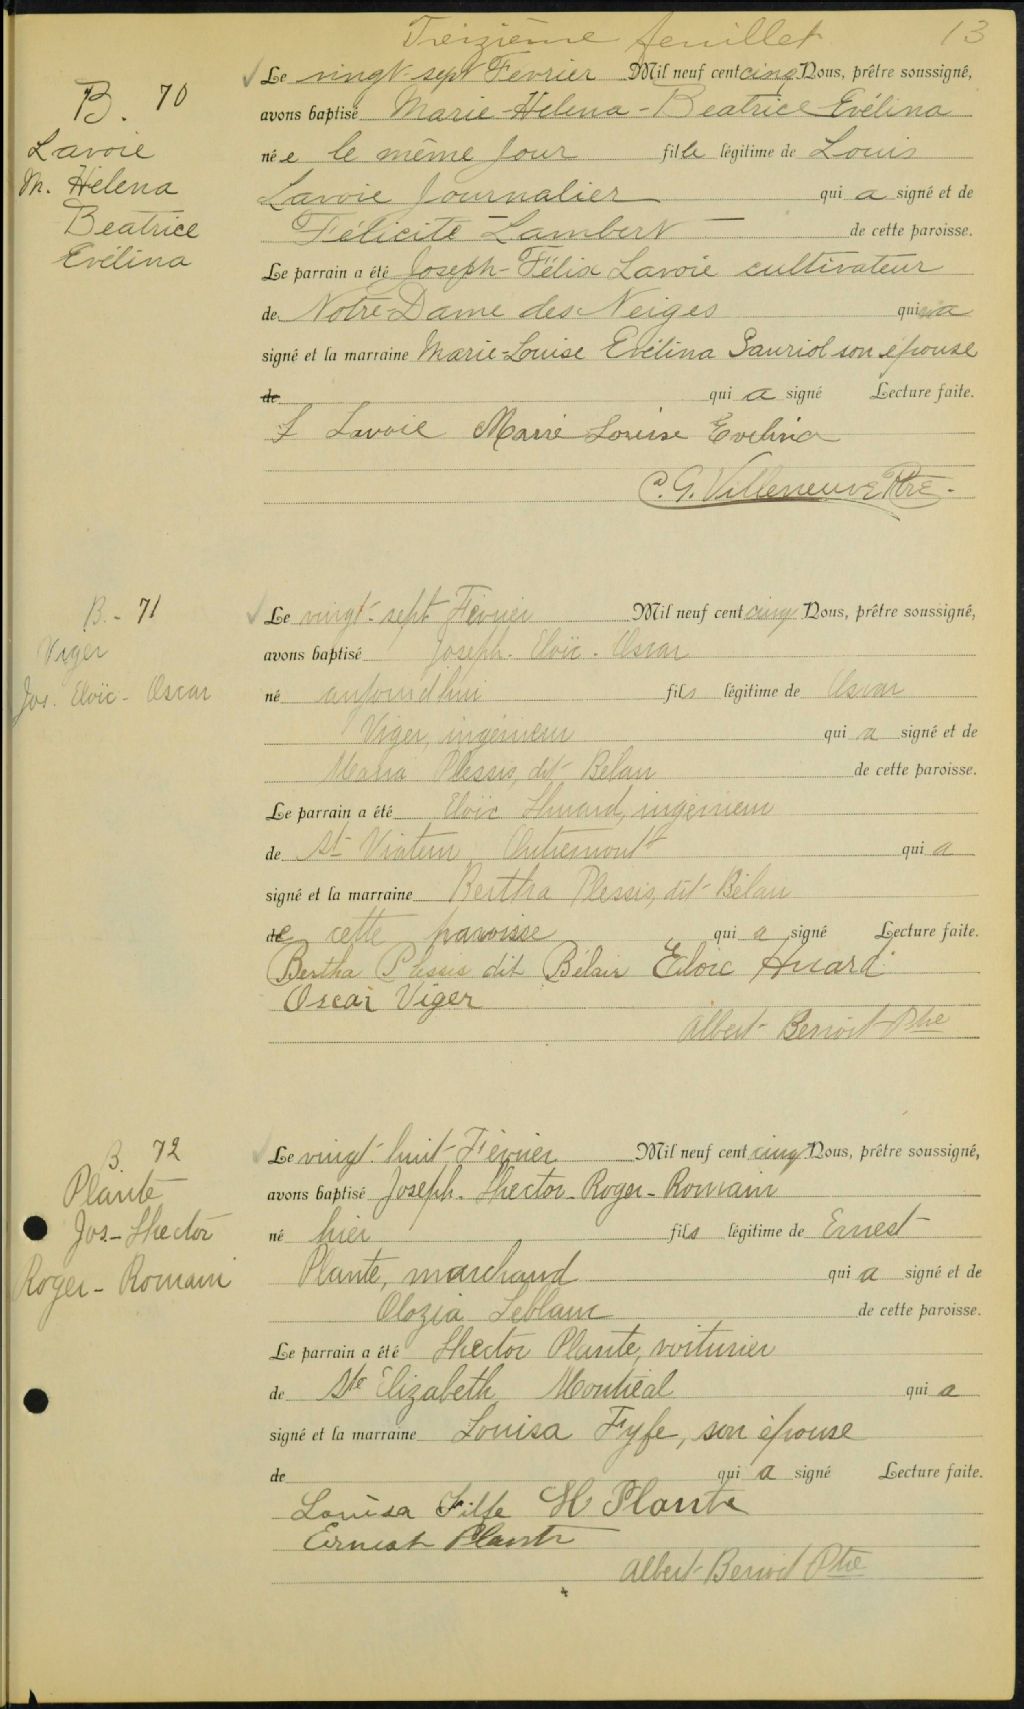 Treizième feuillet 13
B. 70
Lavoie
M. Hélena
Beatrice
Evélina
Le vingt-sept Février Mil neuf cent cinq Nous, prêtre soussigné,
avons baptisé Marie-Helena-Beatrice Evélina
née le même jour fille légitime de Louis
Lavoie Journalier qui a signé et de
Félicité Lambert de cette paroisse.
Le parrain a été Joseph-Félix Lavoie cultivateur
de Notre-Dame des Neiges qui a
signé et la marraine Marie-Louise Evélina Lauriol son épouse
de qui a signé Lecture faite.
F Lavoie Marie Louise Evelina
C. G. Villeneuve Ptre.
B.- 71
Viger
Jos. Eloïc- Oscar
Le vingt-sept Février Mil neuf cent cinq Nous, prêtre soussigné,
avons baptisé Joseph- Eloïc- Oscar
né aujourd'hui fils légitime de Oscar
Viger, ingénieur qui a signé et de
Maria Plessis, dit Bélair de cette paroisse.
Le parrain a été Eloïc Huard, ingénieur
de St Viateur Outremont qui a
signé et la marraine Bertha Plessis, dit Bélair
de cette paroisse qui a signé Lecture faite.
Bertha Plessis dit Bélair Eloic Huard
Oscar Viger
Albert Benoit Ptre
B. 72
Plante
Jos- Hector
Roger- Romain
Le vingt-huit Février Mil neuf cent cinq Nous, prêtre soussigné,
avons baptisé Joseph- Hector- Roger- Romain
né hier fils légitime de Ernest
Plante, marchand qui a signé et de
Olozia Leblanc de cette paroisse.
Le parrain a été Hector Plante, voiturier
de Ste Elizabeth Montréal qui a
signé et la marraine Louisa Fyfe, son épouse
de qui a signé Lecture faite.
Louisa Filfe H Plante
Ernest Plante
Albert Benoit Ptre